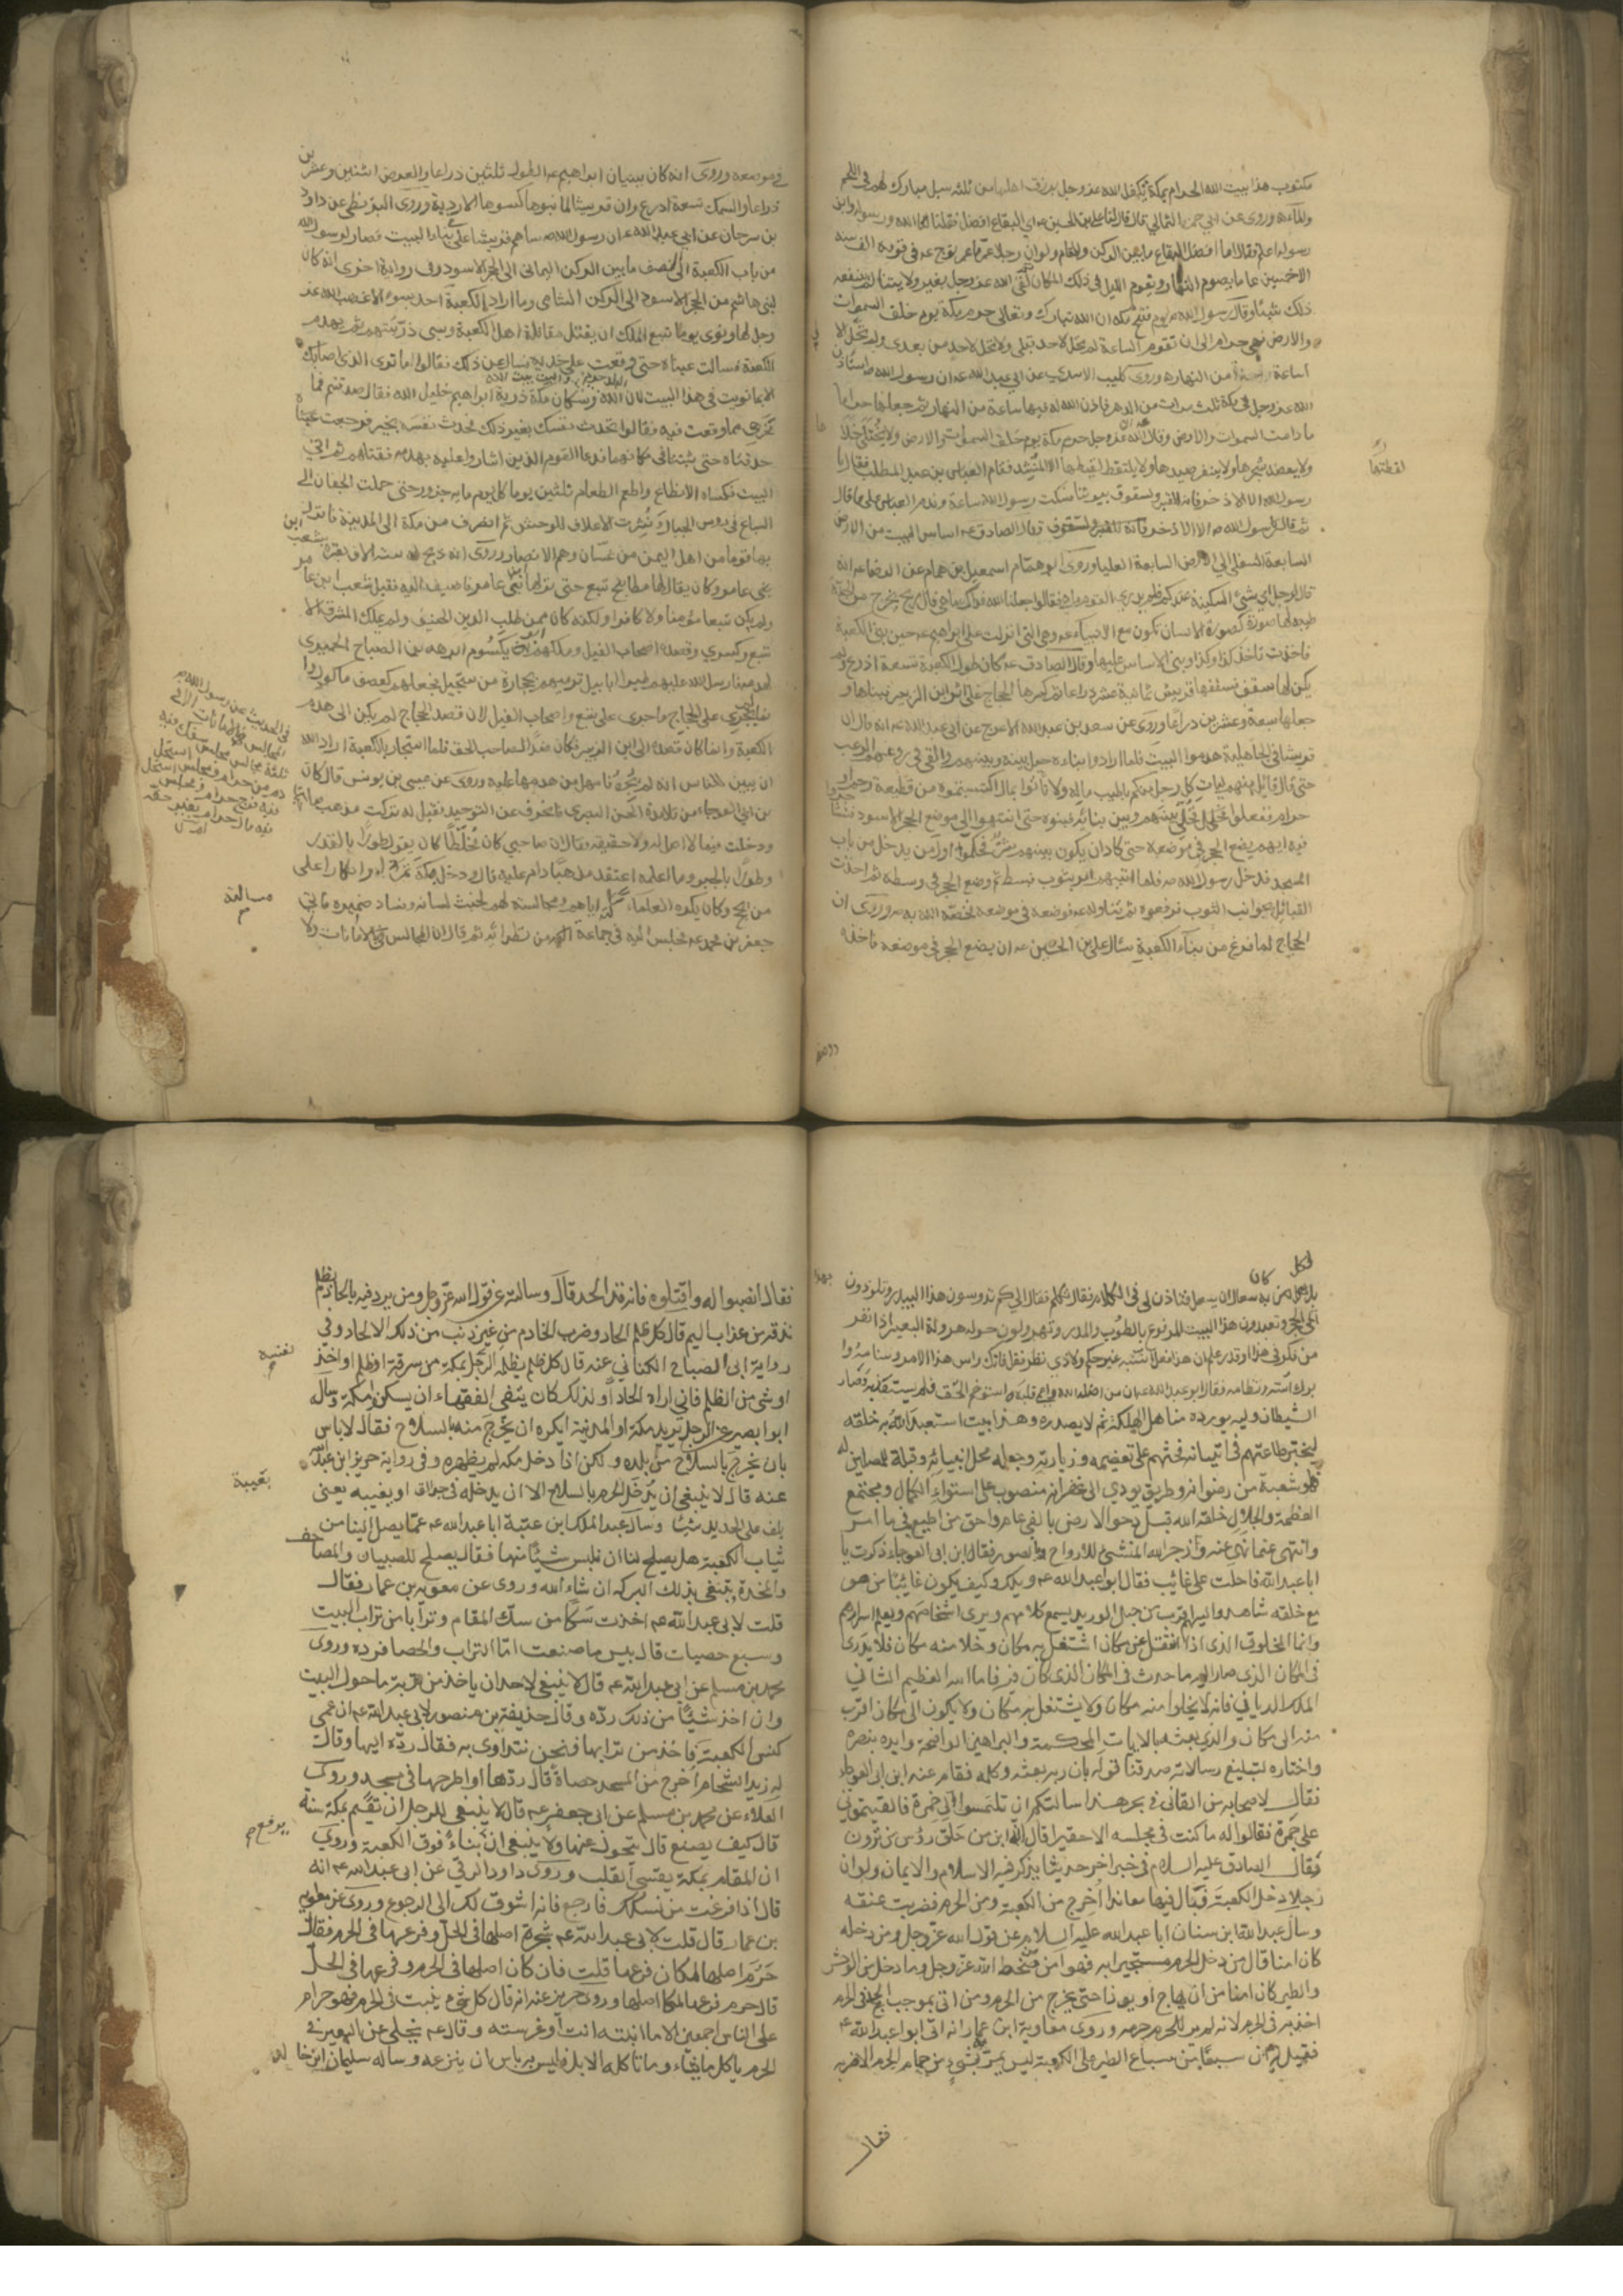 مكتوب هذا بيت الله الحرام بمكة تكفل الله عز وجل برزق اهلها من ثلثة سبل مبارك لهم في اللحم
والماء وروى عن ابي حمزة الثمالي قال قال لنا علي بن الحسين ع اي البقاع افضل فقلنا الله ورسوله وابن
رسوله اعلم فقال اما افضل البقاع ما بين الركن والمقام ولو ان رجلا عمر ما عمر نوح ع في قومه الف سنة
الا خمسين عاما يصوم النهار ويقوم الليل في ذلك المكان ثم لقى الله عز وجل بغير ولايتنا لم ينفعه
ذلك شيئا وقال رسول الله ص يوم فتح مكة ان الله تبارك وتعالى حرم مكة يوم خلق السموات
والارض فهي حرام الى ان تقوم الساعة لم تحل لاحد قبلي ولا تحل لاحد من بعدي ولم تحل لي الا
ساعة من النهار وروى كليب الاسدي عن ابي عبد الله ع ان رسول الله ص استأذن
الله عز وجل في مكة ثلث مرات من الدهر فاذن الله له فيها ساعة من النهار ثم جعلها حراما
ما دامت السموات والارض وقال ان الله عز وجل حرم مكة يوم خلق السموات والارض ولا يختلى خلاها
ولا يعضد شجرها ولا ينفر صيدها ولا يلتقط لقيطها الا لمنشد فقام العباس بن عبد المطلب فقال يا
رسول الله الا الاذخر فانه للقبر ولسقوف بيوتنا فسكت رسول الله ساعة وندم العباس على ما قال
ثم قال رسول الله ص الا الاذخر
السابعة السفلى الى الارض السابعة العليا وروى ابو همام اسمعيل بن همام عن الرضا ع انه
قال لرجل اي شئ السكينة عندكم فلم يدر القوم ما هي فقالوا جعلنا الله فداك ما هي قال ريح تخرج من الجنة
طيبة لها صورة كصورة الانسان تكون مع الانبياء ع وهي التي انزلت على ابراهيم ع حين بنى الكعبة
فاخذت تاخذ كذا وكذا وبنى الاساس عليها وقال الصادق ع كان طول الكعبة تسعة اذرع ولم
يكن لها سقف فسقفها قريش ثمانية عشر ذراعا ثم كسرها الحجاج على ابن الزبير فبناها و
جعلها سبعة وعشرين ذراعا وروى عن سعيد بن عبد الله الاعرج عن ابي عبد الله ع انه قال ان
قريشا في الجاهلية هدموا البيت فلما ارادوا بناءه حيل بينه وبينهم والقى في روعهم الرعب
حتى قال قائل منهم ليات كل رجل منكم باطيب ماله ولا تاتوا بمال اكتسبتموه من قطيعة رحم او
حرام ففعلوا فخلى بينهم وبين بنائه فبنوه حتى انتهوا الى موضع الحجر الاسود
فيه ايهم يضع الحجر في موضعه حتى كاد ان يكون بينهم شر فحكموا اول من يدخل من باب
المسجد فدخل رسول الله ص فلما اتيهم امر بثوب فبسط ثم وضع الحجر في وسطه ثم اخذت
القبائل بجوانب الثوب فرفعوه ثم تناوله ع فوضعه في موضعه فخصه الله به ص وروى ان
الحجاج لما فرغ من بناء الكعبة سال علي بن الحسين ع ان يضع الحجر في موضعه فاخذه
ووضعه
في موضعه وروى انه كان بنيان ابراهيم ع الطول ثلثين ذراعا والعرض اثنين وعشرين
ذراعا والسمك تسعة اذرع وان قريشا لما بنوها كسوها الاردية وروى البزنطي عن داود
بن سرحان عن ابي عبد الله ع ان رسول الله ص ساهم قريشا في بناء البيت فصار لرسول الله
من باب الكعبة الى النصف ما بين الركن اليماني الى الحجر الاسود وفي رواية اخرى انه كان
لبني هاشم من الحجر الاسود الى الركن الشامي وما اراد الكعبة احد بسوء الا غضب الله عز
وجل لها ونوى يوما تبع الملك ان يقتل مقاتلة اهل الكعبة ويسبي ذريتهم ثم يهدم
الكعبة فسالت عيناه حتى وقعت على خديه فسال عن ذلك فقالوا ما نرى الذي اصابك
الا بما نويت في هذا البيت لان البلد حرم الله والبيت بيت الله وسكان مكة ذرية ابراهيم خليل الله فقال صدقتم فما
مخرجي مما وقعت فيه فقالوا تحدث نفسك بغير ذلك فحدث نفسه بخير فرجعت عيناه
حدقتاه حتى ثبتتا في مكانهما فدعا القوم الذين اشاروا عليه بهدمه فقتلهم ثم اتى
البيت فكساه الانطاع واطعم الطعام ثلثين يوما كل يوم ماية جزور حتى حملت الجفان الى
السباع في رؤس الجبال ونثرت الاعلاف للوحش ثم انصرف من مكة الى المدينة فانزل
بها قوما من اهل اليمن من غسان وهم الانصار وروى انه ذبح له ستة الاف بقرة بشعب ابن
عامر وكان يقال لها مطابخ تبع حتى نزلها ابن عامر فاضيفت اليه فقيل شعب ابن عامر
ولم يكن تبع مؤمنا ولا كافرا ولكنه كان ممن طلب الدين الحنيف ولم يملك المشرق الا
تبع وكسرى وقصده اصحاب الفيل وملكهم ابو يكسوم ابرهة بن الصباح الحميري
ليهدمه فارسل الله عليهم طيرا ابابيل ترميهم بحجارة من سجيل فجعلهم كعصف ماكول وانما
لم يجر على الحجاج ما جرى على تبع واصحاب الفيل لان قصد الحجاج لم يكن الى هدم
الكعبة وانما كان قصده الى ابن الزبير وكان ضدا لصاحب الحق فلما استجار بالكعبة اراد الله
ان يبين للناس انه لم يجره فامهل من هدمها عليه وروى عن عيسى بن يونس قال كان
بن ابي العوجاء من تلامذة الحسن البصري فانحرف عن التوحيد فقيل له تركت مذهب صاحبك
ودخلت فيما لا اصل له ولا حقيقة فقال ان صاحبي كان مخلطا كان يقول طورا بالقدر
وطورا بالجبر وما اعلمه اعتقد مذهبا دام عليه قال ودخل مكة تمردا وانكارا على
من يحج وكان يكره العلماء مسائلته اياهم ومجالسته لهم لخبث لسانه وفساد ضميره فاتى
جعفر بن محمد ع فجلس اليه في جماعة من نظرائه ثم قال ان المجالس امانات ولا
لقطتها
مسائلته
بد لكل من كان به سعال ان يسعل فتاذن لي في الكلام فقال تكلم فقال الى كم تدوسون هذا البيدر وتلوذون
بهذا الحجر وتعبدون هذا البيت المرفوع بالطوب والمدر وتهرولون حوله هرولة البعير اذا نفر
من فكر في هذا وقدر علم ان هذا فعل اسسه غير حكيم ولا ذي نظر فقل فانك راس هذا الامر وسنامه وا
بوك اسه ونظامه فقال ابو عبد الله ع ان من اضله الله واعمى قلبه استوخم الحق فلم يستعذبه وصار
الشيطان وليه يورده مناهل الهلكة ثم لا يصدره وهذا بيت استعبد الله به خلقه
ليختبر طاعتهم في اتيانه فحثهم على تعظيمه وزيارته وجعله محل انبيائه وقبلة للمصلين له
فهو شعبة من رضوانه وطريق يودي الى غفرانه منصوب على استواء الكمال ومجتمع
العظمة والجلال خلقه الله قبل دحو الارض بالفي عام واحق من اطيع في ما امر
وانتهى عما نهى عنه وزجر الله المنشئ للارواح والصور فقال ابن ابي العوجاء ذكرت يا
ابا عبد الله فاحلت على غائب فقال ابو عبد الله ع ويلك وكيف يكون غائبا من هو
مع خلقه شاهد واليهم اقرب من حبل الوريد يسمع كلامهم ويرى اشخاصهم ويعلم اسرارهم
وانما المخلوق الذي اذا انتقل عن مكان اشتغل به مكان وخلا منه مكان فلا يدرى
في المكان الذي صار اليه ما حدث في المكان الذي كان فيه فاما الله العظيم الشاني
الملك الديان فانه لا يخلوا منه مكان ولا يشتغل به مكان ولا يكون الى مكان اقرب
منه الى مكان والذي بعثه بالايات المحكمة والبراهين الواضحة وايده بنصره
واختاره لتبليغ رسالاته صدقنا قوله بان ربه بعثه وكلمه فقام عنه ابن ابي العوجاء
فقال لاصحابه من القاني في بحر هذا سالتكم ان تلتمسوا لي خمرة فالقيتموني
على جمرة فقالوا له ما كنت في مجلسه الا حقيرا قال انه ابن من حلق رؤس من ترون
فقال الصادق عليه السلام في خبر اخر حديثا يذكر فيه الاسلام والايمان ولو ان
رجلا دخل الكعبة فبال فيها معاندا اخرج من الكعبة ومن الحرم فضربت عنقه
وسال عبد الله ابن سنان ابا عبد الله عليه السلام عن قول الله عز وجل ومن دخله
كان امنا قال من دخل الحرم مستجيرا به فهو امن من سخط الله عز وجل وما دخل من الوحش
والطير كان امنا من ان يهاج او يوذا حتى يخرج من الحرم ومن اتى بموجب الحد في الحرم
اخذ به في الحرم لانه لم ير للحرم حرمة وروى معاوية ابن عمار انه اتى ابو عبد الله ع
فقيل له ان سبعا من سباع الطير على الكعبة ليس يمر به شيء من حمام الحرم الا ضربه
فقال
فقال انصبوا له واقتلوه فانه قد الحد قال وسالته عن قول الله عز وجل ومن يرد فيه بالحاد بظلم
نذقه من عذاب اليم قال كل ظلم الحاد وضرب الخادم من غير ذنب من ذلك الالحاد وفي
رواية ابي الصباح الكناني عنه قال كل ظلم يظلمه الرجل بمكة من سرقة او ظلم او اخذ
او شئ من الظلم فاني اراه الحادا ولذلك كان يتقى الفقهاء ان يسكن مكة وسال
ابو ابصير عن الرجل يريد مكة او المدينة ايكره ان يخرج منه بالسلاح فقال لا باس
بان يخرج بالسلاح من بلده ولكن اذا دخل مكة لم يظهره وفي رواية حريز ابن عبد الله
عنه قال لا ينبغي ان يدخل الحرم بالسلاح الا ان يدخله في جوالق او يغيبه يعنى
يلف على الحديد شيئا وسال عبد الملك ابن عتبة ابا عبد الله ع عما يصل الينا من
ثياب الكعبة هل يصلح لنا ان نلبس شيئا منها فقال يصلح للصبيان والمصاحف
والمخدة يبتغى بذلك البركة ان شاء الله وروى عن معوية بن عمار فقال
قلت لابي عبد الله ع اخذت سكا من سك المقام وترابا من تراب البيت
وسبع حصيات قال بيس ما صنعت اما التراب والحصا فرده وروى
محمد بن مسلم عن ابي عبد الله ع قال لا ينبغي لاحد ان ياخذ من تربة ما حول البيت
وان اخذ شيئا من ذلك رده وقال حذيفة بن منصور لابي عبد الله ع ان عمي
كنس الكعبة فاخذ من ترابها فنحن نتداوى به فقال رده اليها وقال
له زيد الشحام اخرج من المسجد حصاة قال ردها او اطرحها في مسجد وروى
العلاء عن محمد بن مسلم عن ابي جعفر ع قال لا ينبغي للرجل ان يقيم بمكة سنة
قال كيف يصنع قال يتحول عنها ولا ينبغي ان بناء فوق الكعبة وروي
ان المقام بمكة يقسى القلب وروى داود الرقي عن ابي عبد الله ع انه
قال اذا فرغت من نسكك فارجع فانه اشوق لك الى الرجوع وروى عن معوية
بن عمار قال قلت لابي عبد الله ع شجرة اصلها في الحل وفرعها في الحرم فقال
حرم اصلها لمكان فرعها قلت فان كان اصلها في الحرم وفرعها في الحل
قال حرم فرعها لمكان اصلها وروى حريز عنه انه قال كل شئ ينبت في الحرم فهو حرام
على الناس اجمعين الا ما انبته انت او غرسته وقال ع يخلى عن البعير في
الحرم ياكل ما يشاء وما تاكله الابل فليس به باس ان ينزعه وساله سليمان ابن خالد
يغيبه
يرفع